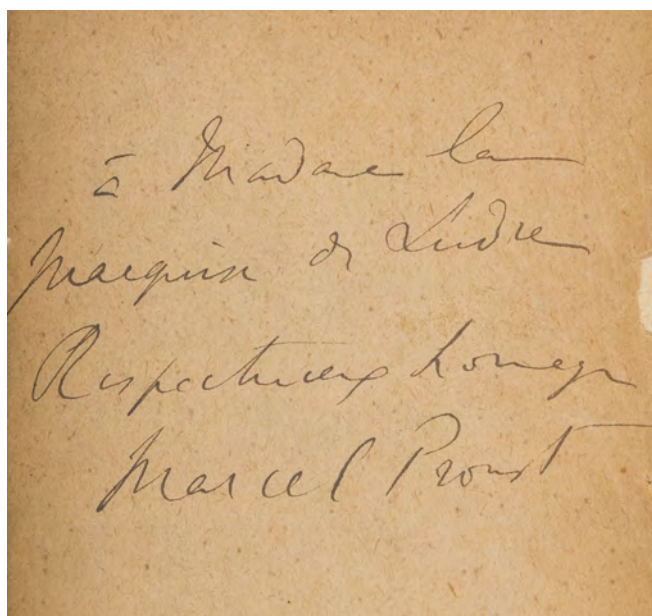 à Madame la
Marquise de Ludre
Respectueux hommage
Marcel Proust